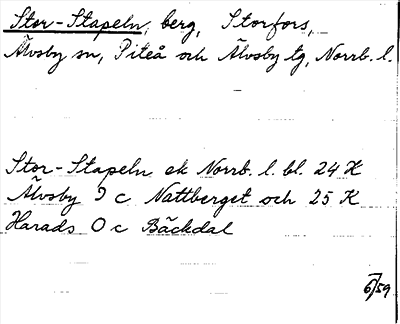 Stor-Stapeln, berg, Storfors,
Älvsby sn, Piteå och Älvsby tg, Norrb. l.
Stor-Stapeln ek Norrb. l. bl. 24 K
Älvsby 9 c Nattberget och 25 K
Harads 0 c Bäckdal
6/59